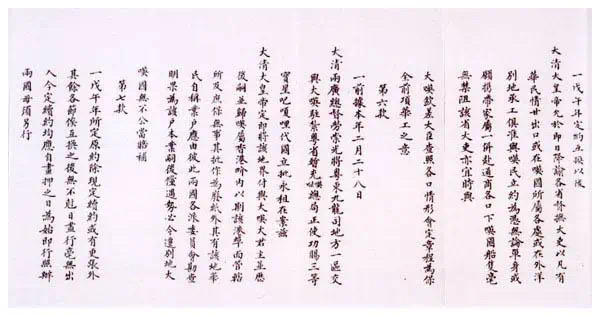 一戊午年定約互換以後
大清大皇帝允於即日降諭各省督撫大吏以凡有
華民情甘出口或在𠸄國所屬各處或在外洋
別地承工俱准與𠸄民立約為憑無論單身或
願攜帶家屬一併赴通商各口下𠸄國船隻毫
無禁阻該省大吏亦宜時與
大𠸄欽差大臣查照各口情形會定章程為保
全前項華工之意
第六款
一前據本年二月二十八日
大清兩廣總督勞崇光將粵東九龍司地方一區交
與大𠸄駐紮粵省暫充總局正使功賜三等
寶星代國立批永租在案茲
大清大皇帝定即將該地界付與大𠸄大君主並歷
後嗣並歸𠸄屬香港界內以期該港埠面管轄
所及庶保無事其批作為廢紙外其有該地華
民自稱業戶應由彼此兩國各派委員會勘查
明果為該戶本業嗣後倘遇勢必令遷別地大
𠸄國無不公當賠補
第七款
一戊午年所定原約除現定續約或有更張外
其餘各節俟互換之後無不尅日盡行毫無出
入今定續約均應自畫押之日為始即行照辦
兩國毋須另行